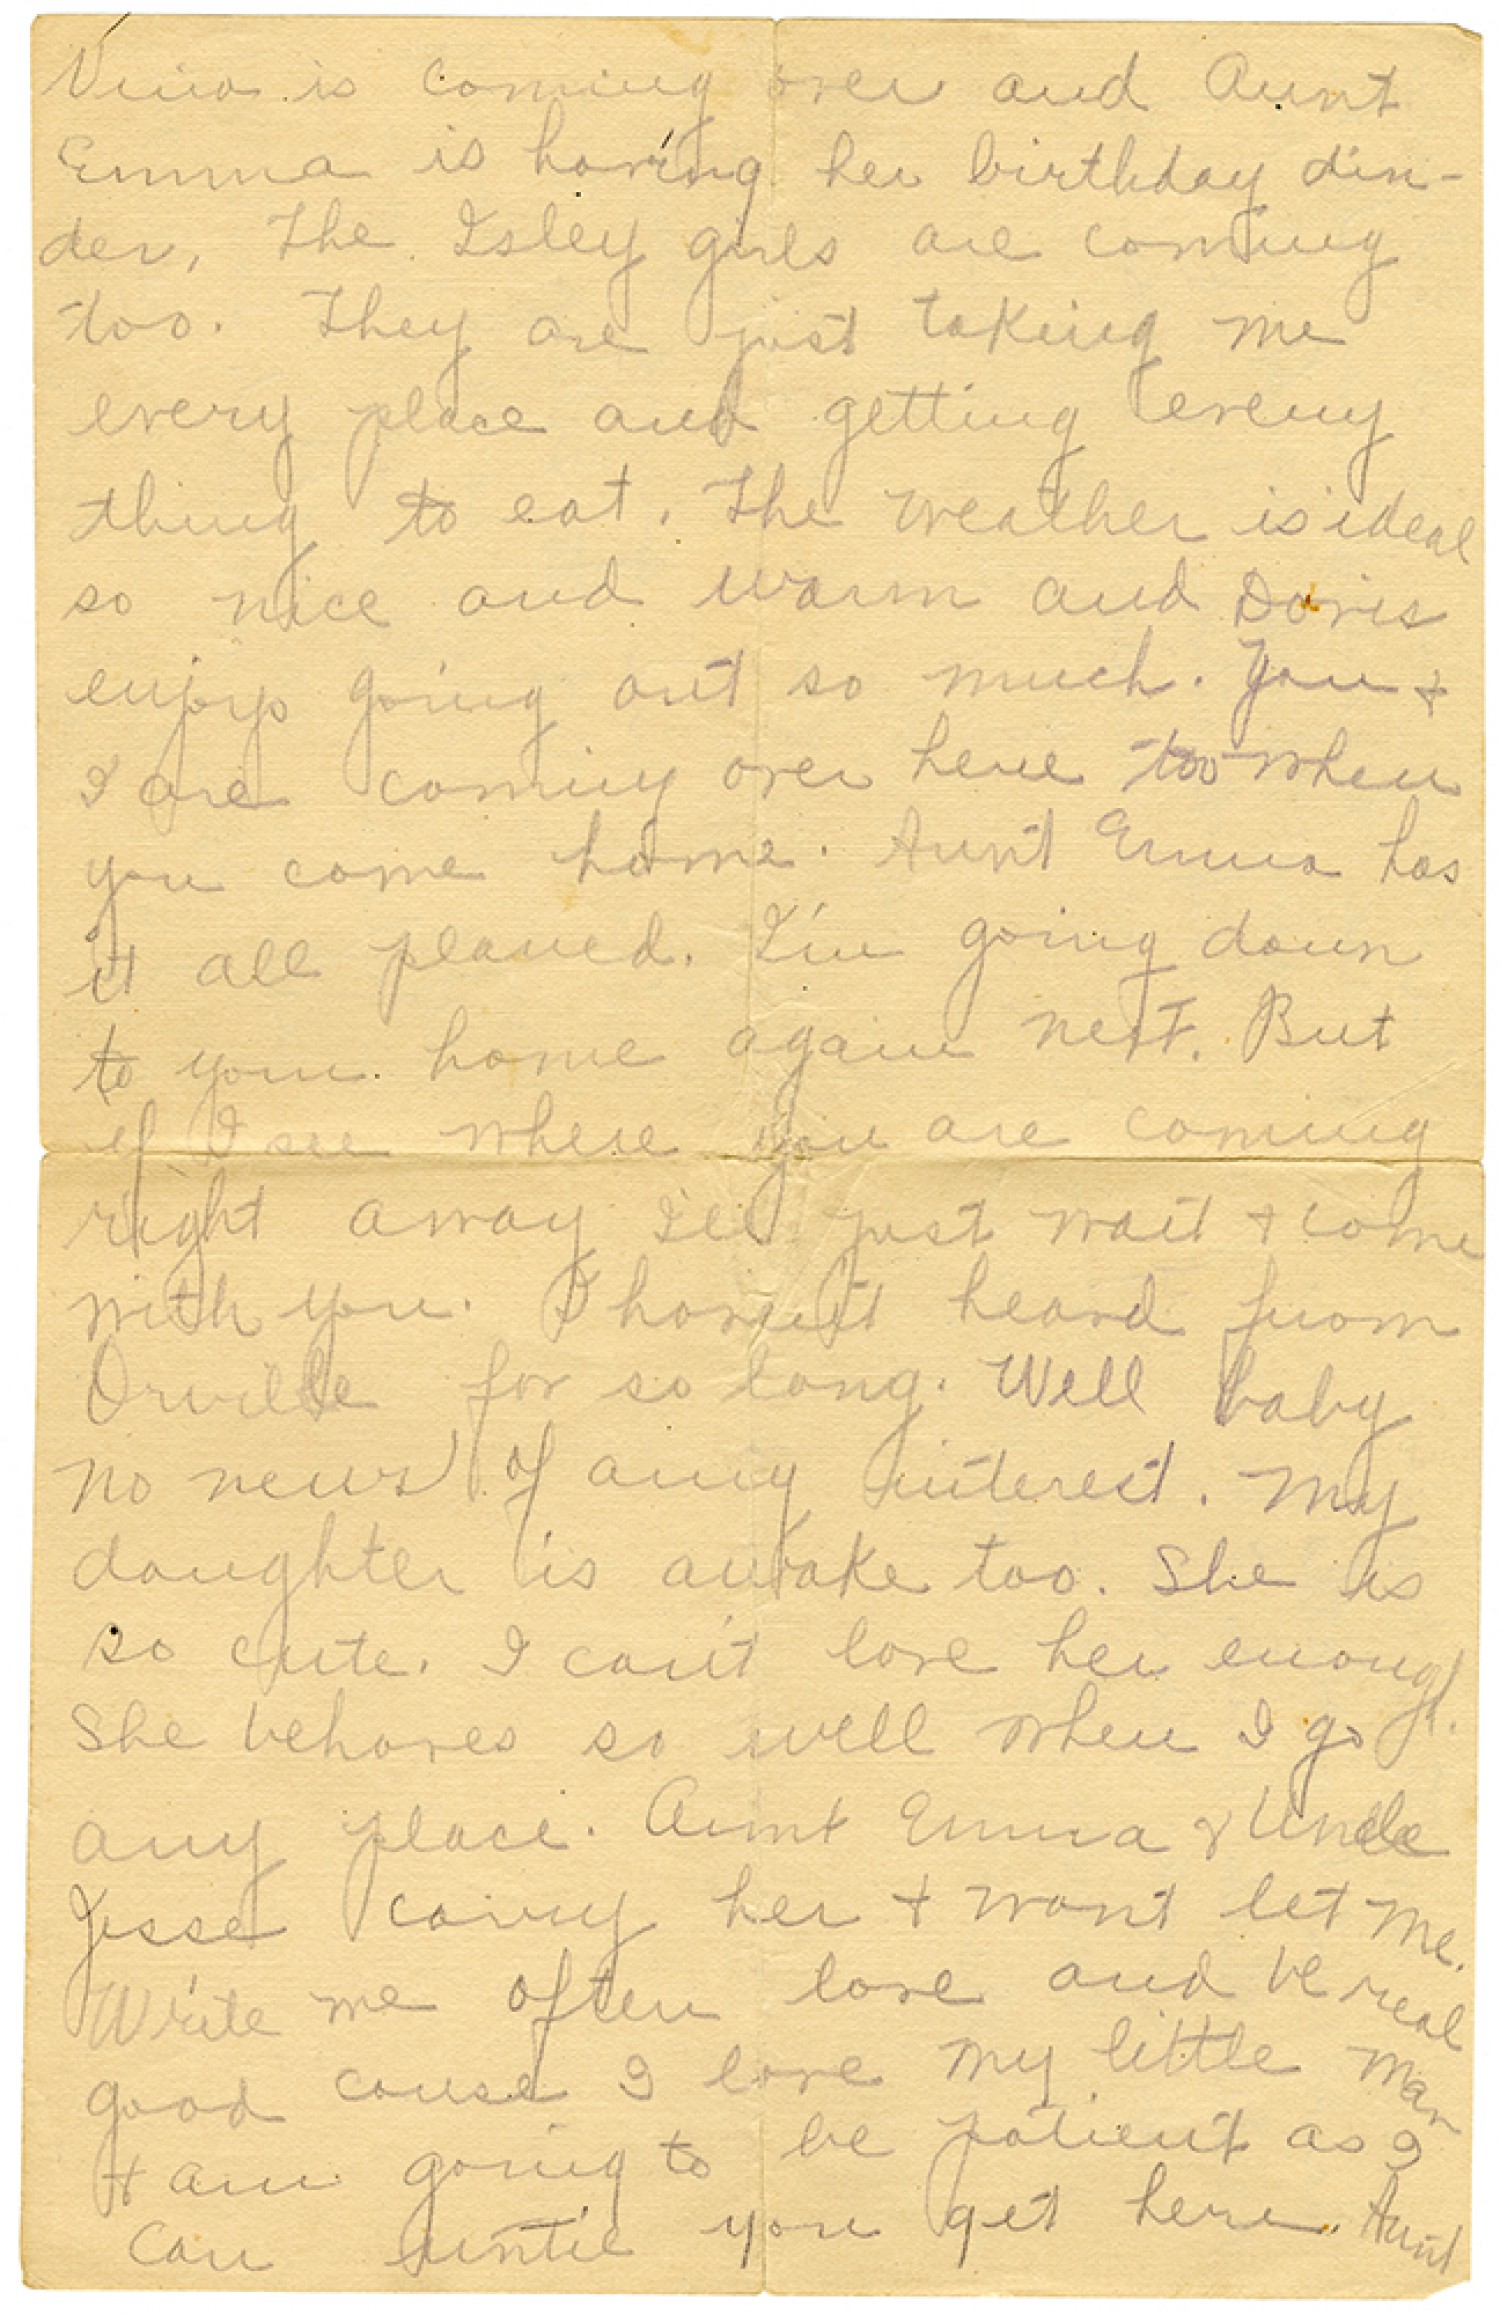 Nina is coming over and Aunt
Emma is having her birthday din-
der, The Isley girls are coming
too. They are just taking me
every place and getting every
thing to eat. The weather is ideal
so nice and warm and Doris
enjoys going out so much. You +
I are coming over here too when
you come home. Aunt Emma has
it all planed. I'm going down
to your home again next. But
if I see where you are coming
right away I'll just wait + come
with you. I haven't heard from
Orville for so long. Well baby
no news of any interest. My
daughter is awake too. She is
so cute. I can't love her enough.
She behaves so well when I go
any place. Aunt Emma & Uncle
Jesse carry her + wont let me.
Write me often love and be real
good cause I love my little man
+ am going to be patient as I
can until you get here. Aunt